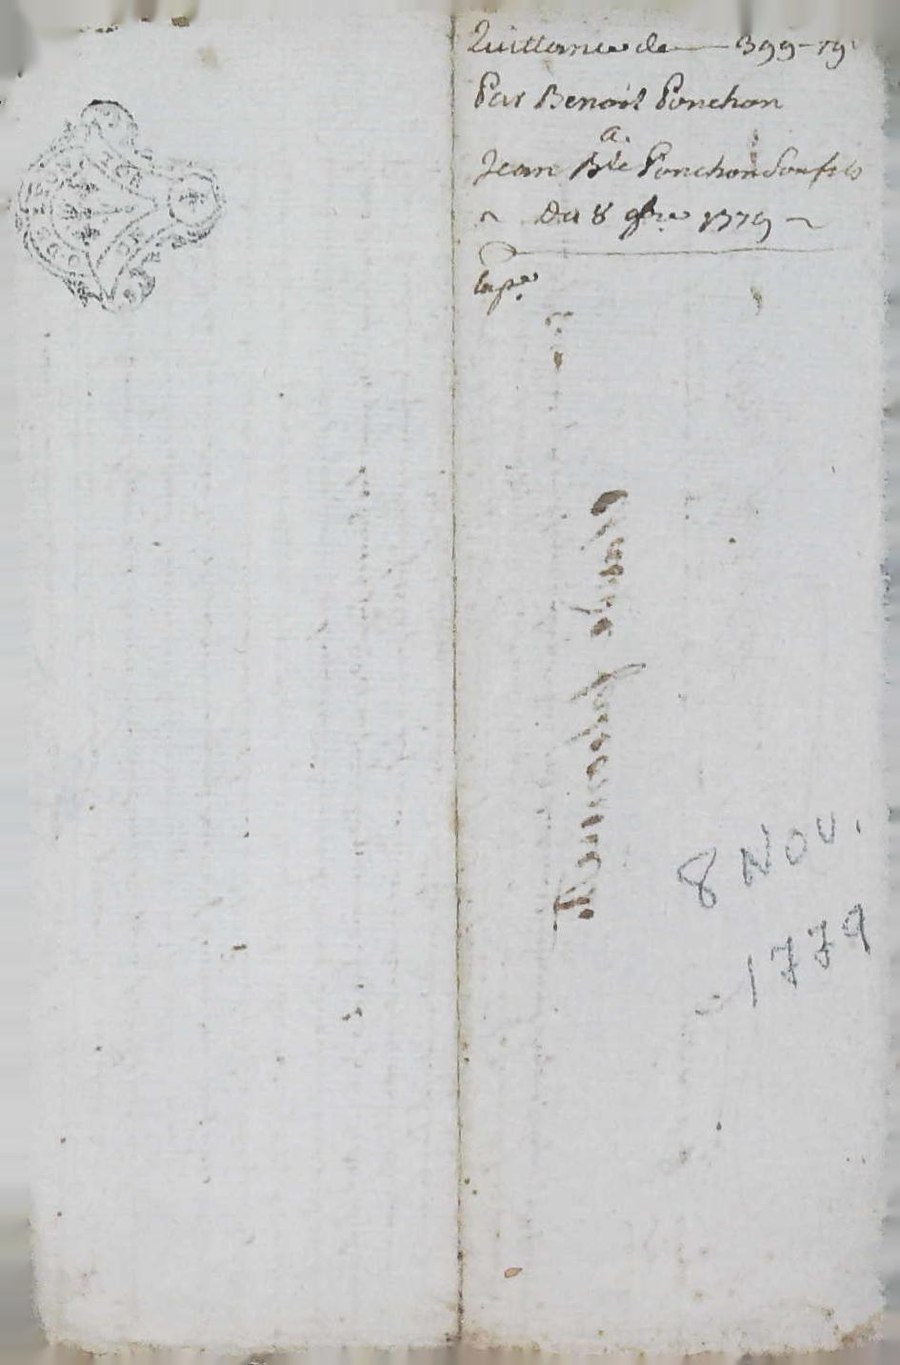 Quittance de — 399–19s
Par Benoit Ponchon
a
Jean Bte Ponchon Son fils
~ Du 8 9bre 1779 ~
Expe
8 Nov.
1779